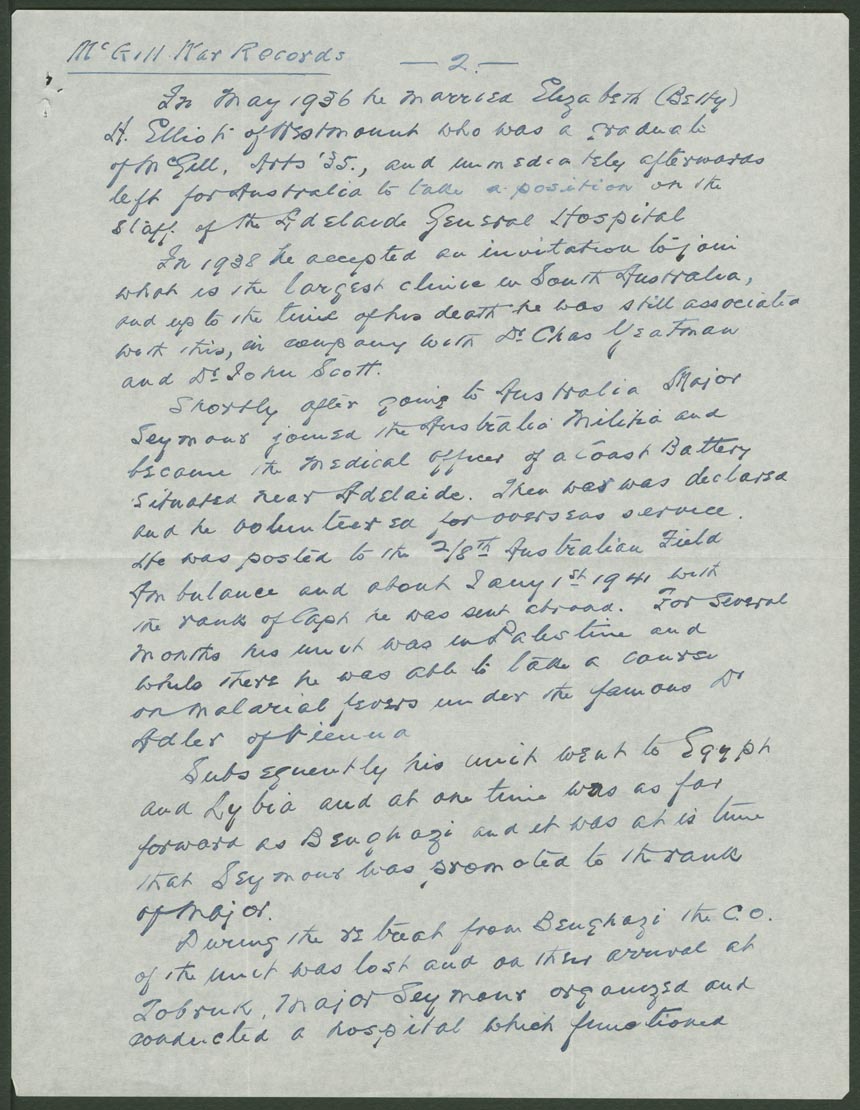 McGill War Records
— 2. —
In May 1936 he married Elizabeth (Betty)
H. Elliot of Westmount who was a graduate
of McGill, Arts '35., and immediately afterwards
left for Australia to take a position on the
staff of the Adelaide General Hospital
In 1938 he accepted an invitation to join
what is the largest clinic in South Australia,
and up to the time of his death he was still associated
with this, in company with Dr Chas Yeatman
and Dr John Scott.
Shortly after going to Australia Major
Seymour joined the Australia Militia and
became the medical officer of a Coast Battery
situated near Adelaide. Then war was declared
and he volunteered for overseas service.
He was posted to the 2/8th Australian Field
Ambulance and about Jany 1st 1941 with
the rank of Capt he was sent abroad. For several
months his unit was in Palestine and
while there he was able to take a course
on malarial fevers under the famous Dr
Adler of Vienna
Subsequently his unit went to Egypt
and Lybia and at one time was as far
forward as Benghazi and it was at is time
that Seymour was promoted to the rank
of Major.
During the retreat from Benghazi the C.O.
of the unit was lost and on their arrival at
Tobruk, Major Seymour organized and
conducted a hospital which functioned